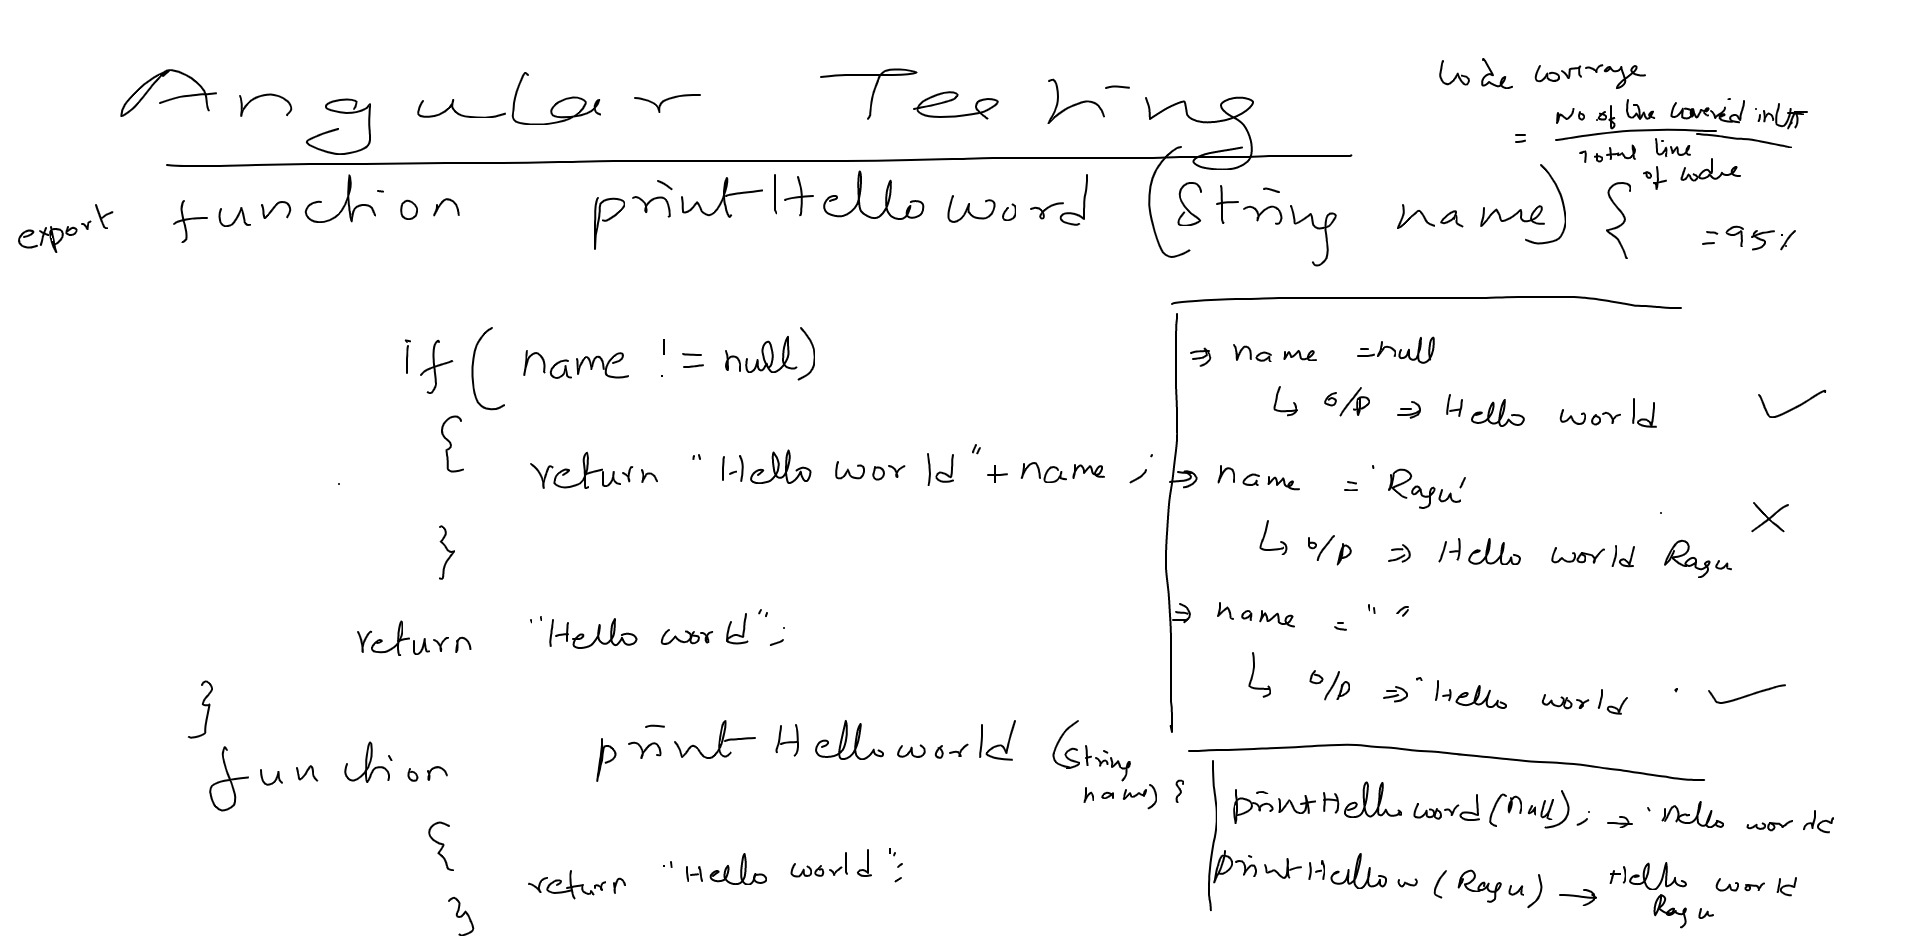 Angular Testing
Code coverage
= No of line covered in UT
Total line
of code
= 95%
export function printHelloword (String name) {
if ( name != null)
{
return "Hello world" + name ;
}
return "Hello world";
}
function printHelloworld (String
name) {
{
return "Hello world";
}
⇒ name = null
↳ o/p ⇒ Hello world ✓
⇒ name = 'Ragu'
↳ o/p ⇒ Hello world Ragu ×
⇒ name = " "
↳ o/p ⇒ "Hello world ✓
printHelloword (null) ; → 'Hello world
printHellow (Ragu) → Hello world
Ragu